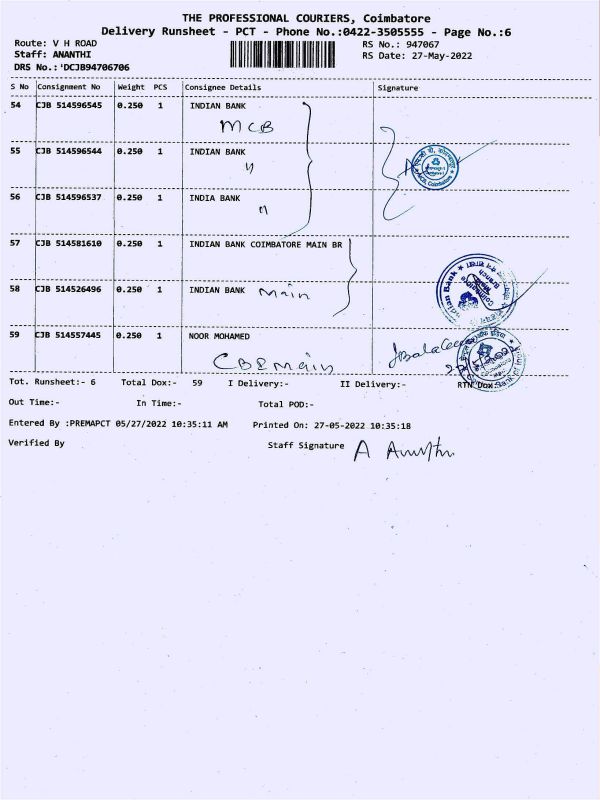 THE PROFESSIONAL COURIERS, Coimbatore
Delivery Runsheet - PCT - Phone No.:0422-3505555 - Page No.:6
Route: V H ROAD RS No.: 947067
Staff: ANANTHI RS Date: 27-May-2022
DRS No.:'DCJB94706706
S No Consignment No Weight PCS Consignee Details Signature
54 CJB 514596545 0.250 1 INDIAN BANK
MCB
55 CJB 514596544 0.250 1 INDIAN BANK
56 CJB 514596537 0.250 1 INDIA BANK
57 CJB 514581610 0.250 1 INDIAN BANK COIMBATORE MAIN BR
58 CJB 514526496 0.250 1 INDIAN BANK Main
Indian Bank
59 CJB 514557445 0.250 1 NOOR MOHAMED
CBE Main
Tot. Runsheet:- 6 Total Dox:- 59 I Delivery:- II Delivery:- RTN Dox:-
Out Time:- In Time:- Total POD:-
Entered By :PREMAPCT 05/27/2022 10:35:11 AM Printed On: 27-05-2022 10:35:18
Verified By Staff Signature A